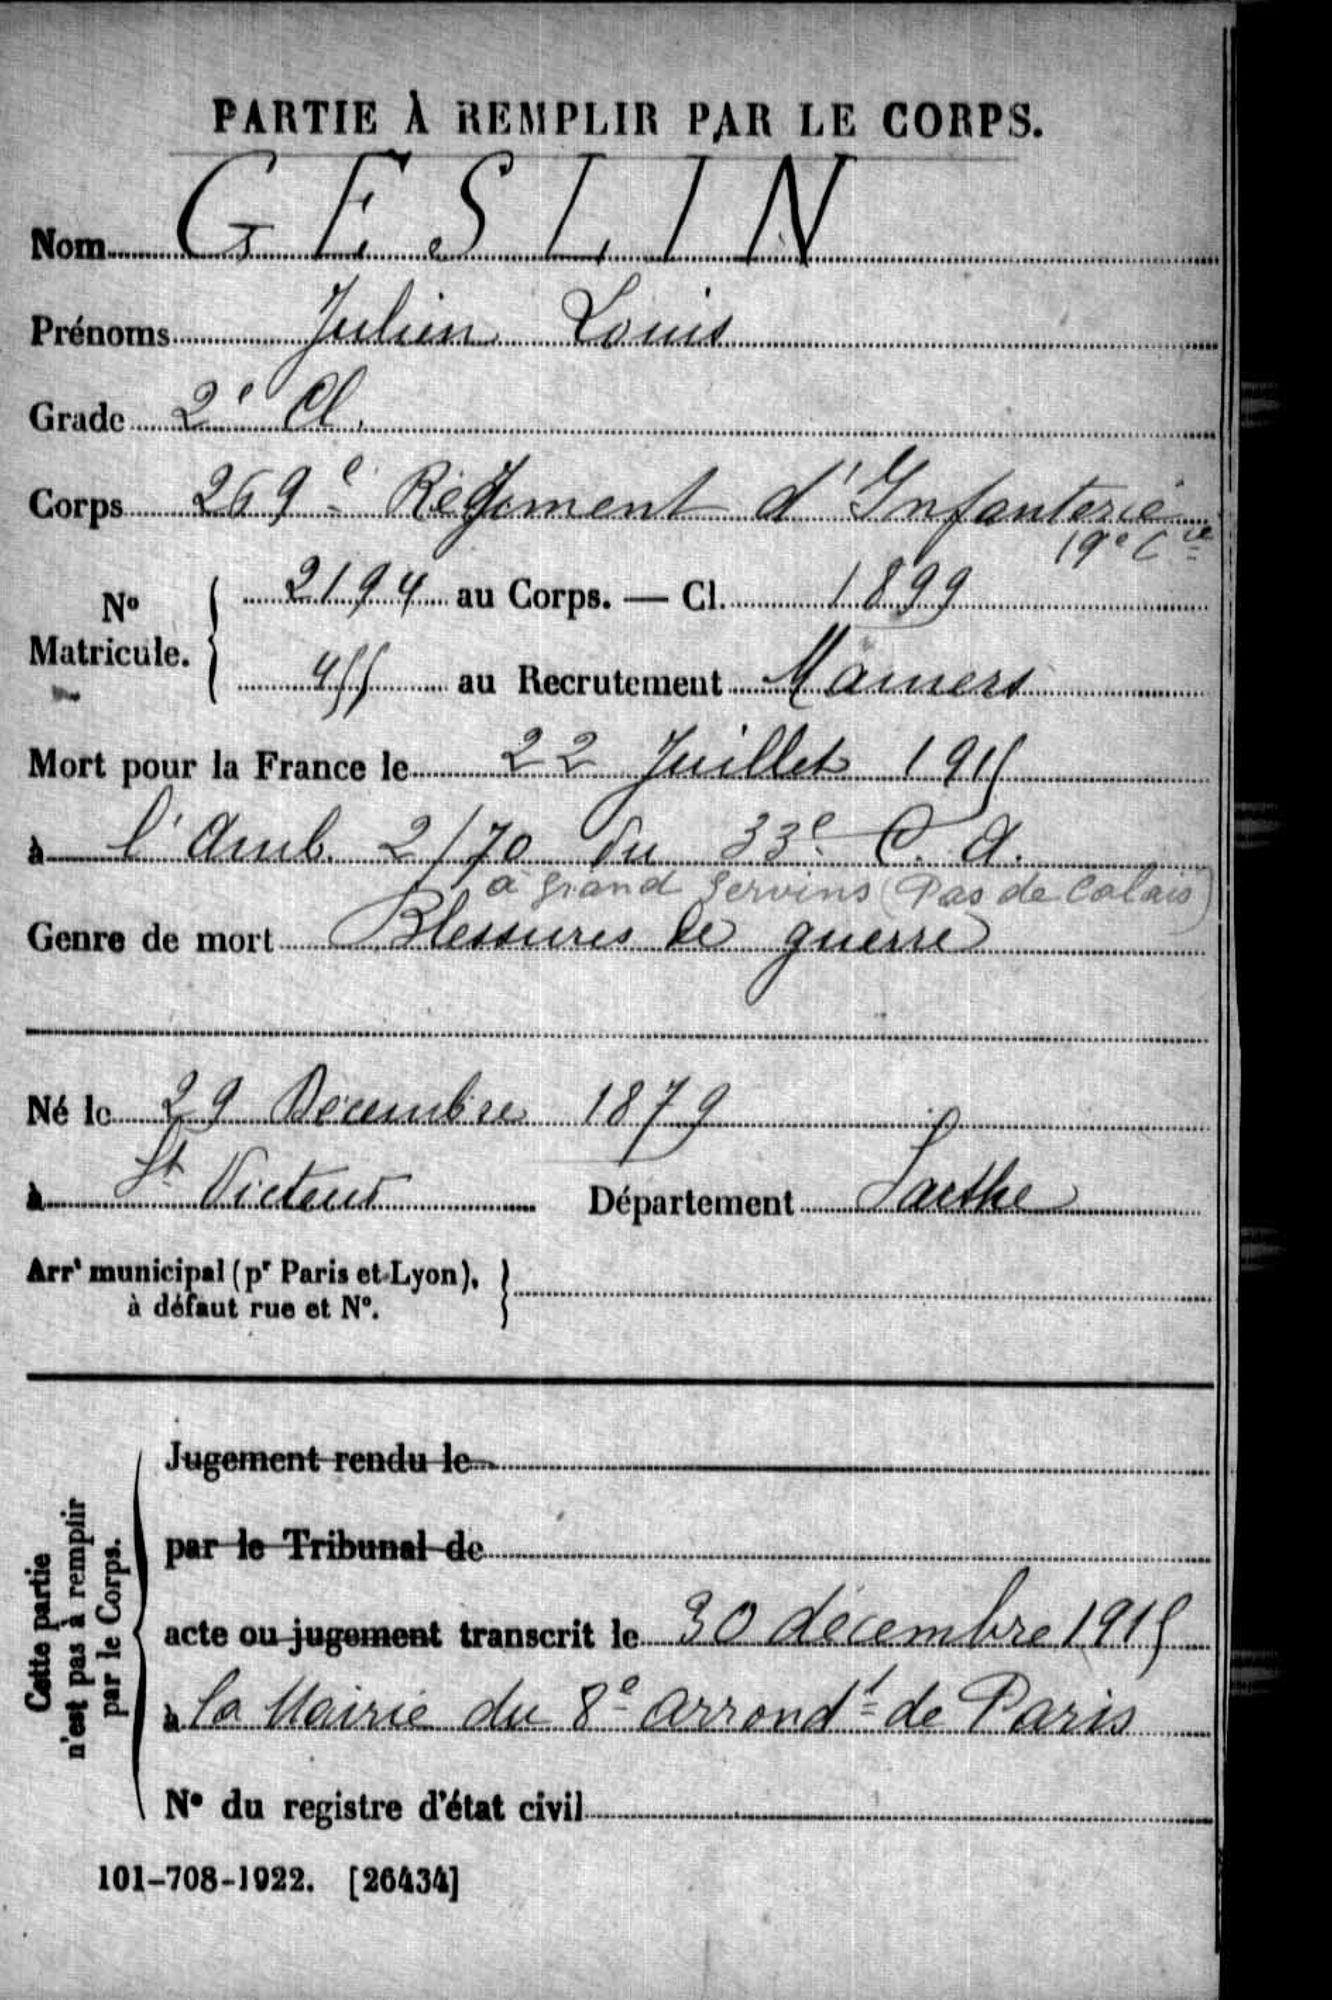 PARTIE À REMPLIR PAR LE CORPS.
Nom GESLIN
Prénoms Julien Louis
Grade 2e Cl.
Corps 269e Régiment d'Infanterie
19e Cie
No Matricule. { 2194 au Corps. — Cl. 1899
455 au Recrutement Mamers
Mort pour la France le 22 Juillet 1915
à l'Amb. 2/70 du 33e C. A.
à Grand Servins (Pas de Calais)
Genre de mort Blessures de guerre
Né le 29 Décembre 1879
à St Victeur Département Sarthe
Arrt municipal (pr Paris et Lyon), }
à défaut rue et No.
Cette partie n'est pas à remplir par le Corps.
Jugement rendu le
par le Tribunal de
acte ou jugement transcrit le 30 décembre 1915
à la Mairie du 8e arrondt de Paris
No du registre d'état civil
101-708-1922. [26434]